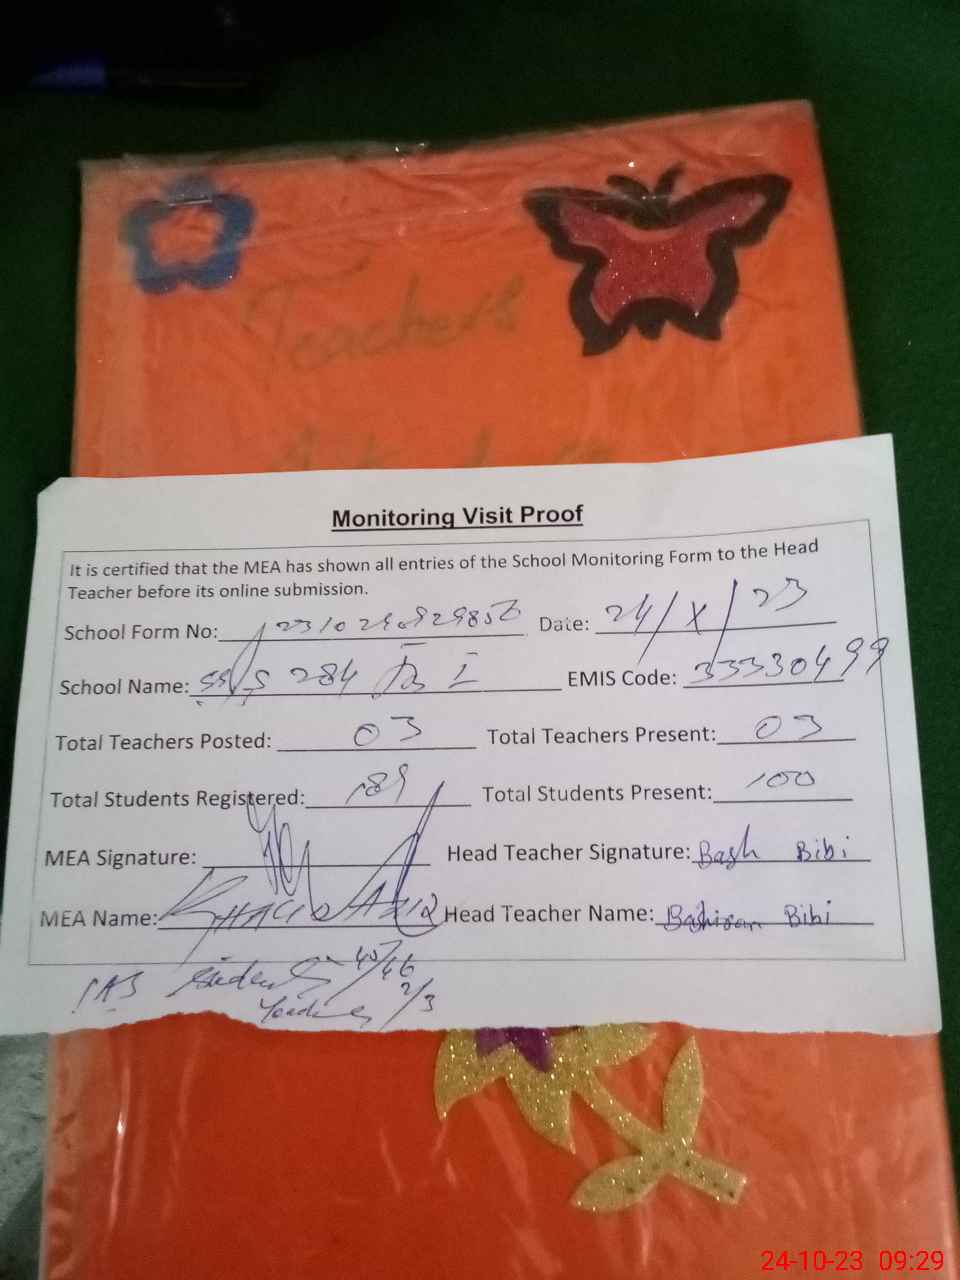 Teachers
Monitoring Visit Proof
It is certified that the MEA has shown all entries of the School Monitoring Form to the Head
Teacher before its online submission.
School Form No: Date: 24/X/23
School Name: 284 EMIS Code: 33330499
Total Teachers Posted: 03 Total Teachers Present: 03
Total Students Registered: 189 Total Students Present: 100
MEA Signature: Head Teacher Signature: Bash Bibi
MEA Name: Head Teacher Name: Bashiran Bibi
Students 45/46
2/3
24-10-23 09:29